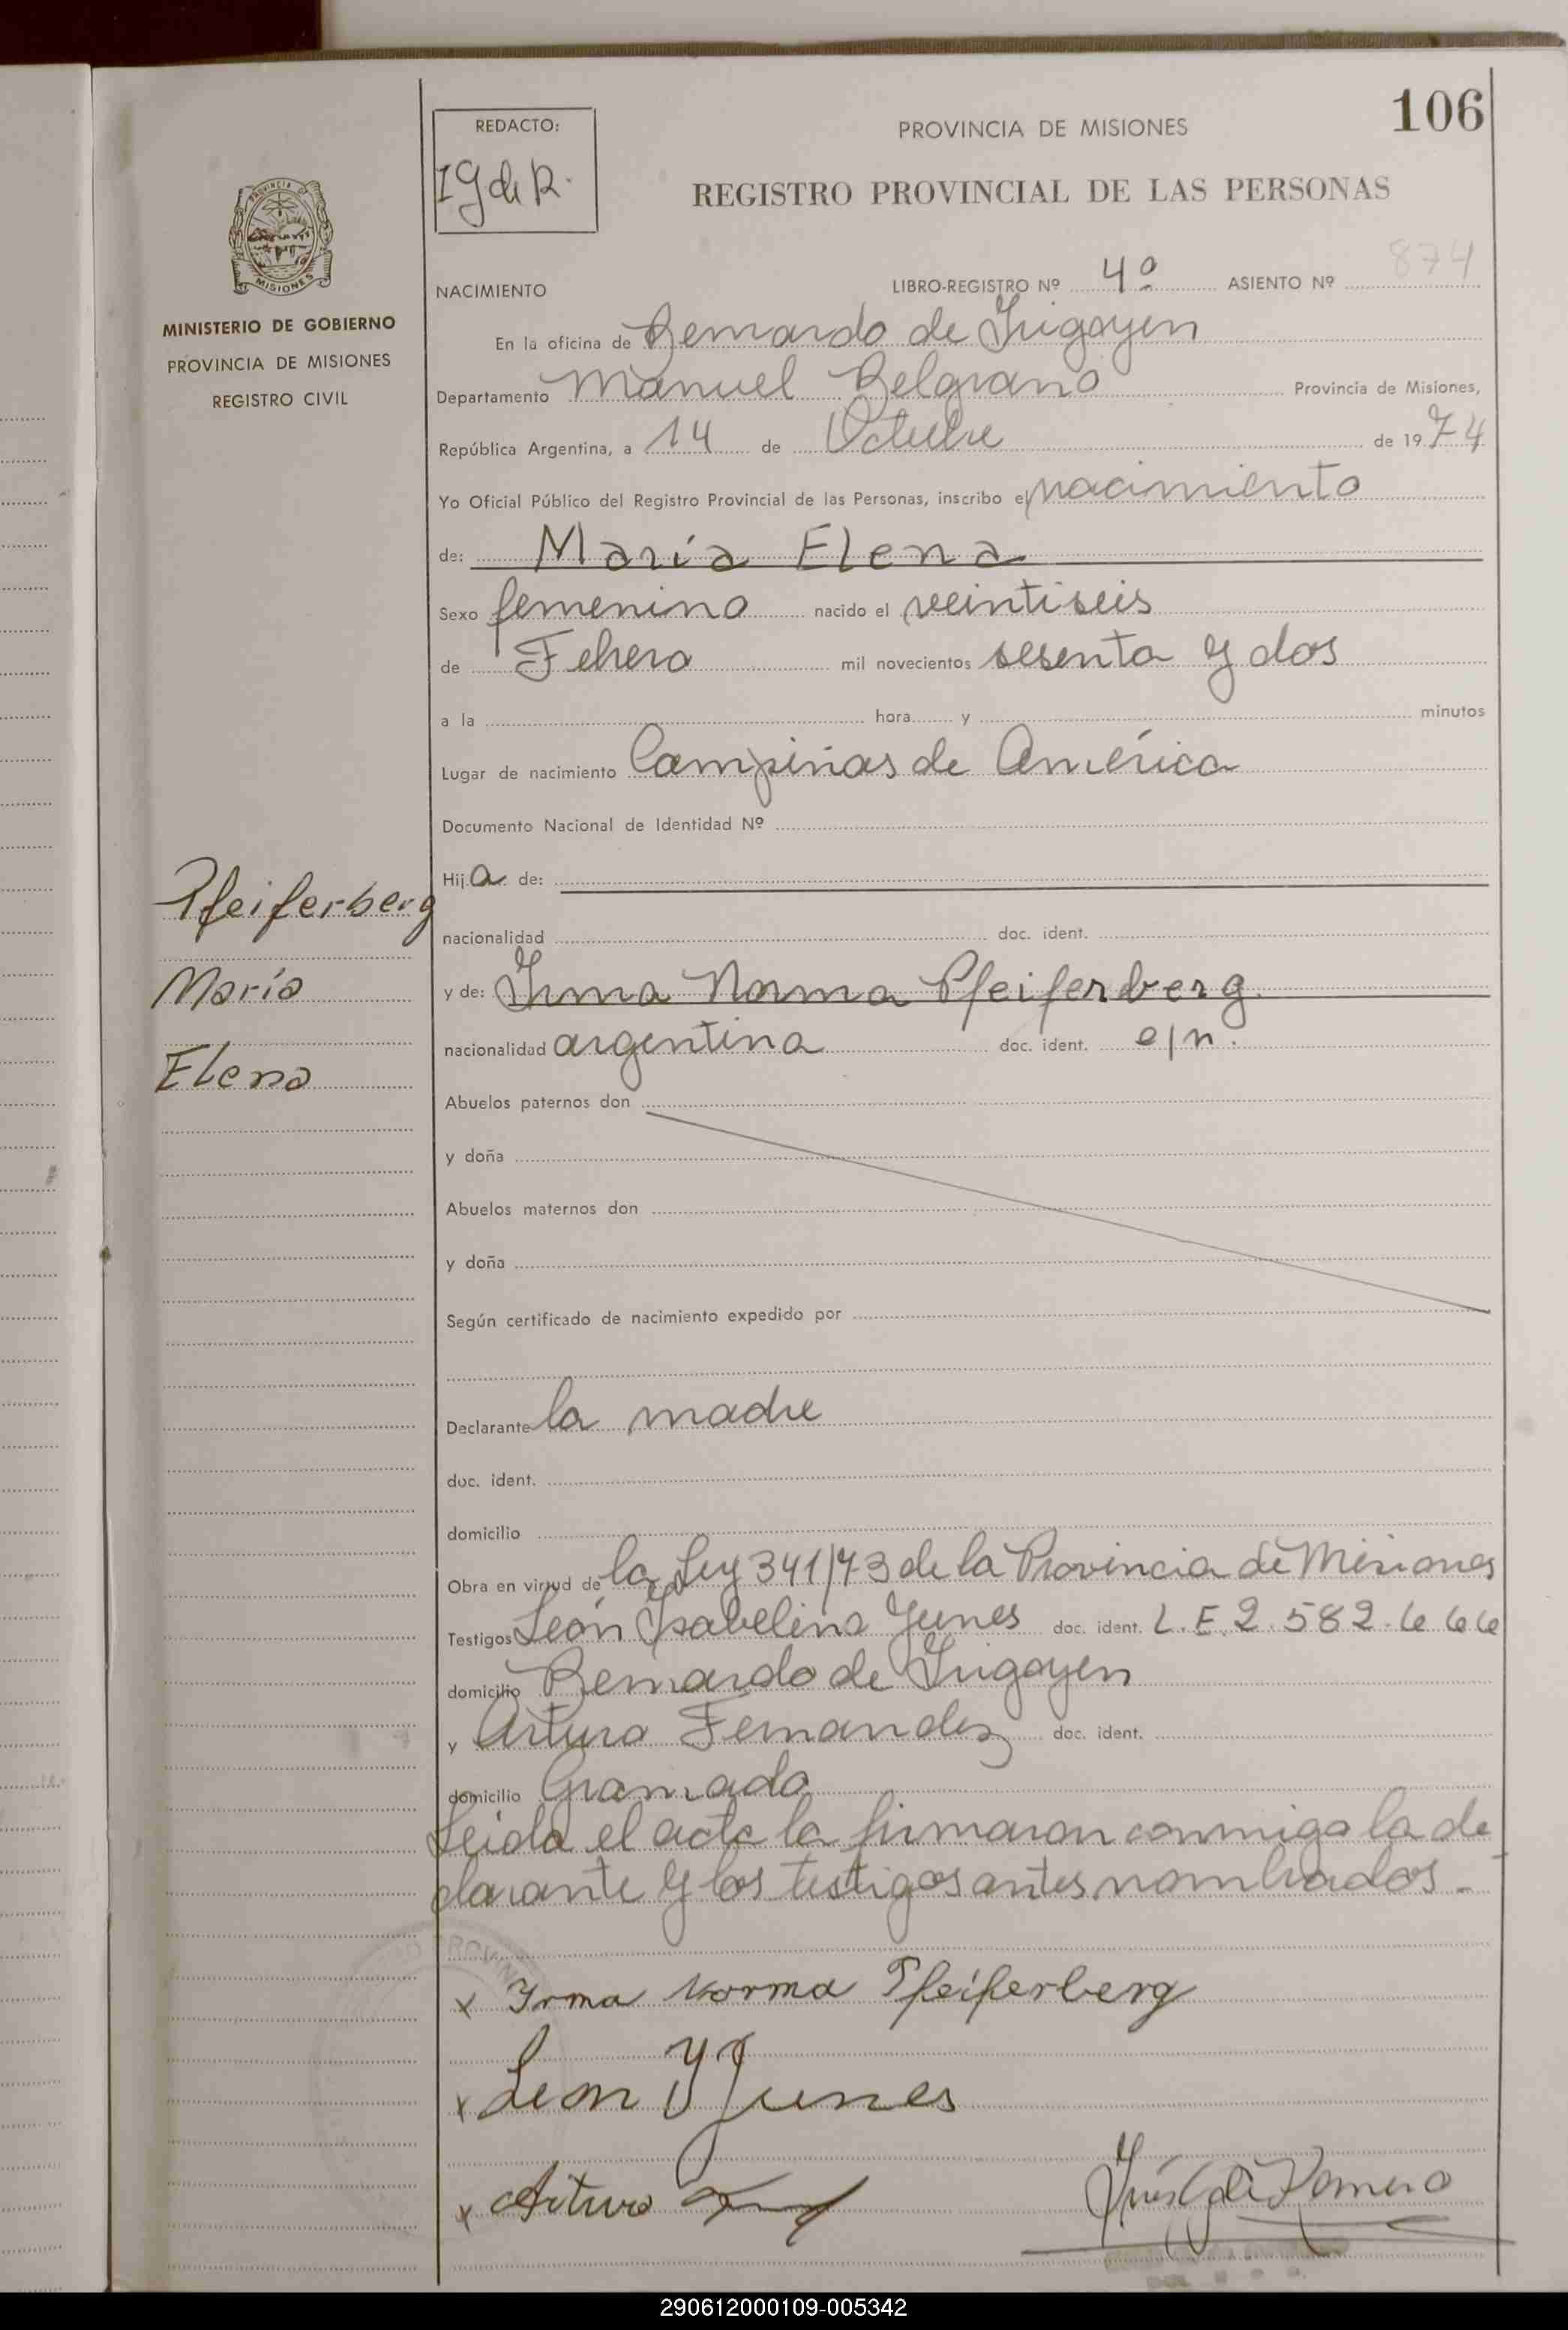 106
REDACTO:
IG de R.
PROVINCIA DE MISIONES
REGISTRO PROVINCIAL DE LAS PERSONAS
PROVINCIA
MISIONES
MINISTERIO DE GOBIERNO
PROVINCIA DE MISIONES
REGISTRO CIVIL
NACIMIENTO LIBRO-REGISTRO Nº 4º ASIENTO Nº 874
En la oficina de Bernardo de Irigoyen
Departamento Manuel Belgrano Provincia de Misiones,
República Argentina, a 14 de Octubre de 1974
Yo Oficial Público del Registro Provincial de las Personas, inscribo el nacimiento
de: María Elena
Sexo femenino nacido el veintiseis
de Febrero mil novecientos sesenta y dos
a la hora y minutos
Lugar de nacimiento Campiñas de América
Documento Nacional de Identidad Nº
Hija de:
nacionalidad doc. ident.
y de: Irma Norma Pfeiferberg
nacionalidad argentina doc. ident. e/n.
Pfeiferberg
María
Elena
Abuelos paternos don
y doña
Abuelos maternos don
y doña
Según certificado de nacimiento expedido por
Declarante la madre
doc. ident.
domicilio
Obra en virtud de la Ley 341/73 de la Provincia de Misiones
Testigos León Ysabelino Yunes doc. ident. L.E.2.582.666
domicilio Bernardo de Irigoyen
y Arturo Fernandez doc. ident.
domicilio Gramado
Leida el acta la firmaron conmigo la de
clarante y los testigos antes nombrados.-
x Irma Norma Pfeiferberg
x Leon Y Yunes
x Arturo
Inés G de Romero
290612000109-005342